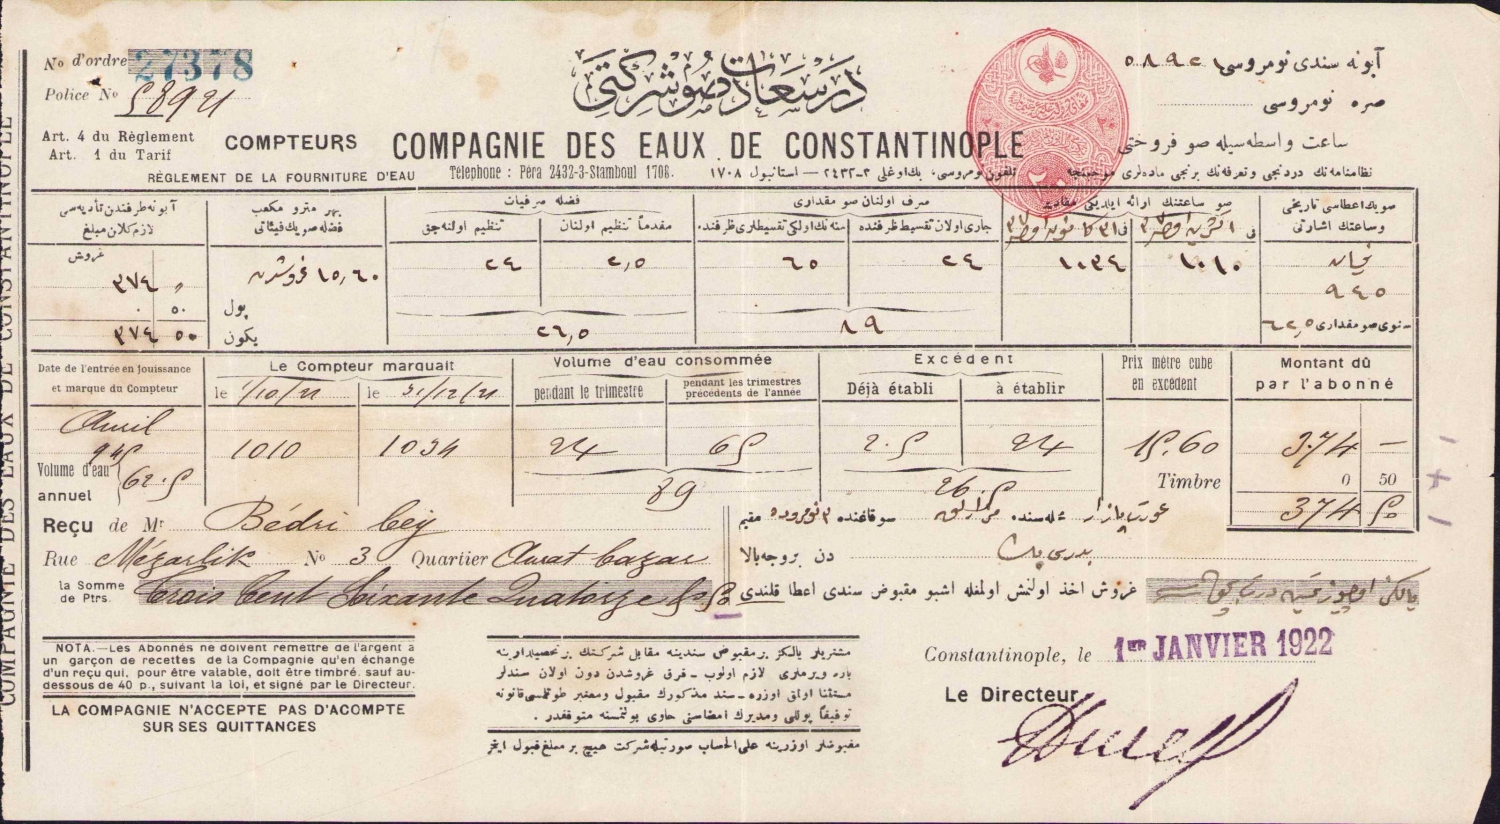 No d'ordre 27378
Police No 58921
Art. 4 du Règlement
Art. 1 du Tarif
COMPTEURS
RÈGLEMENT DE LA FOURNITURE D'EAU
درسعادت صو شركتی
COMPAGNIE DES EAUX DE CONSTANTINOPLE
Téléphone : Péra 2432-3-Stamboul 1708.
تلفون نومروسی، بك اوغلی ٣-٢٤٣٢ — استانبول ١٧٠٨
آبونه سندی نومروسی ٥٨٩٢١
صره نومروسی
ساعت واسطه سيله صو فروختی
نظامنامه نك دردنجی و تعرفه نك برنجی ماده لری موجبنجه
صويك اعطاسی تاريخی
و ساعتك اشارتی
صو ساعتنك ارائه ايلديكی مقادير
صرف اولنان صو مقداری
جاری اولان تقسيط ظرفنده
سنه نك اولكی تقسيطلری ظرفنده
فضله صرفيات
مقدما تنظيم اولنان
تنظيم اولنه جق
بهر مترو مكعب
فضله صويك فيئاتی
آبونه طرفندن تأديه سی
لازم كلان مبلغ
غروش
نيسان
٩٤٥
١٠١٠
١٠٣٤
٢٤
٦٥
٢,٥
٢٤
١٥,٦٠ غروشدن
٣٧٤
سنوی صو مقداری ٦٢,٥
٨٩
٢٦,٥
پول
٥٠
يكون
٣٧٤ ٥٠
Date de l'entrée en jouissance
et marque du Compteur
Le Compteur marquait
le 1/10/21
le 31/12/21
Volume d'eau consommée
pendant le trimestre
pendant les trimestres
précedents de l'année
Excédent
Déjà établi
à établir
Prix mètre cube
en excédent
Montant dû
par l'abonné
Avril
945
1010
1034
24
65
2.5
24
15.60
374 —
Volume d'eau
annuel
62.5
89
26.5
Timbre
0 50
374 50
Reçu de Mr Bédri bey
Rue Mézarlik No 3 Quartier Avrat bazar
la Somme
de Ptrs. Trois Cent Sixante Quatorze 50
عورت بازار محله سنده مزارلق سوقاغنده ٣ نومروده مقيم
بدری بك دن بروجه بالا
يالكز اوچيوز يتمش درت غروش اخذ اولنمش اولمغله اشبو مقبوض سندی اعطا قلندی
NOTA.—Les Abonnés ne doivent remettre de l'argent à
un garçon de recettes de la Compagnie qu'en échange
d'un reçu qui, pour être valable, doit être timbré. sauf au-
dessous de 40 p., suivant la loi, et signé par le Directeur.
LA COMPAGNIE N'ACCEPTE PAS D'ACOMPTE
SUR SES QUITTANCES
مشتريلر يالكز بر مقبوض سندينه مقابل شركتك بر تحصيلدارينه
پاره ويرملری لازم اولوب - قرق غروشدن دون اولان سندلر
مستثنا اولمق اوزره - سند مذكورك مقبول و معتبر طوتلمسی قانونه
توفيقاً پوللی و مديرك امضاسنی حاوی بولنمسنه متوقفدر .
مقبوضلر اوزرينه علی الحساب صورتيله شركت هيچ بر مبلغ قبول ايتمز
Constantinople, le 1ER JANVIER 1922
Le Directeur,
COMPAGNIE DES EAUX DE CONSTANTINOPLE